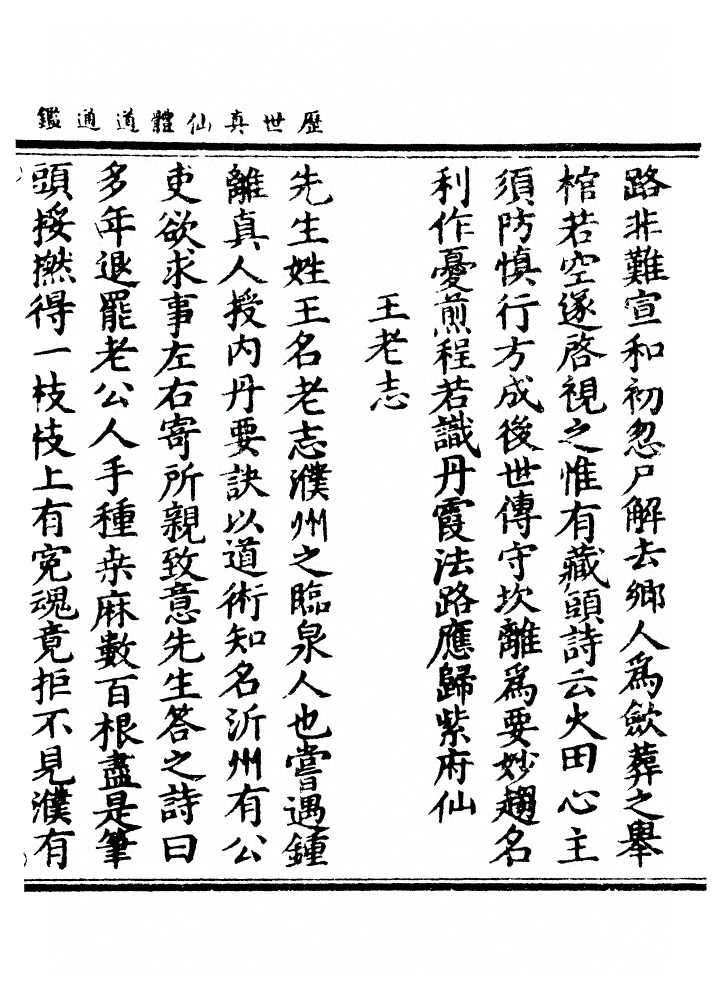 歷世真仙體道通鑑
路非難宣和初忽尸解去鄉人爲歛葬之舉
棺若空遂啓視之惟有藏頭詩云火田心主
須防慎行方成後世傳守坎離爲要妙趨名
利作憂煎程若識丹霞法路應歸紫府仙
王老志
先生姓王名老志濮州之臨泉人也嘗遇鍾
離真人授内丹要訣以道術知名沂州有公
吏欲求事左右寄所親致意先生答之詩曰
多年退罷老公人手種桒麻數百根盡是筆
頭挼撚得一枝枝上有寃魂竟拒不見濮有